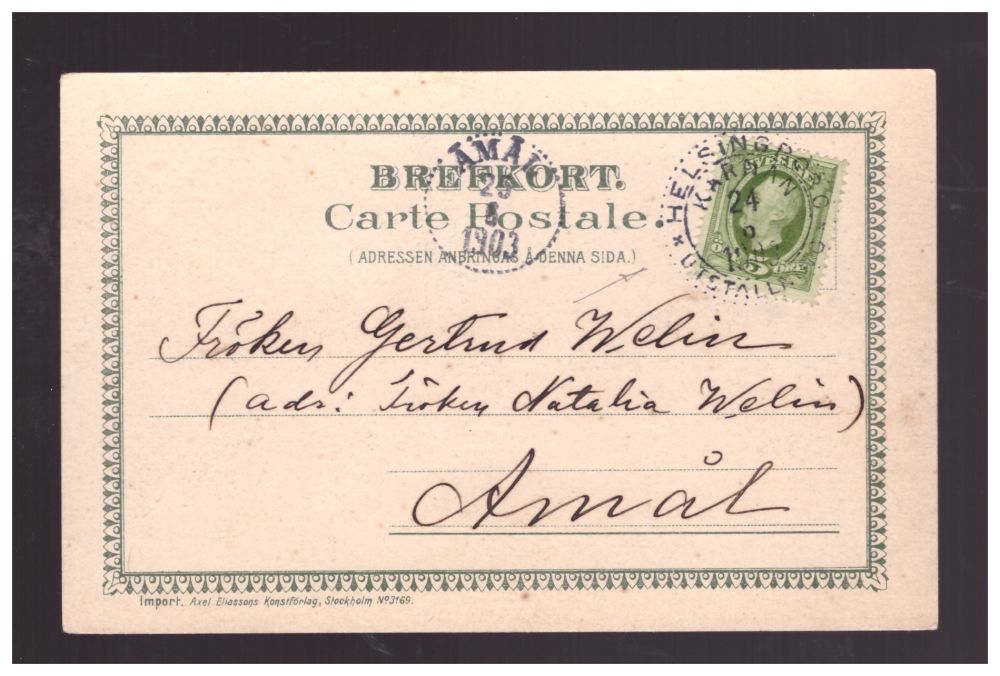 BREFKORT.
Carte Postale.
(ADRESSEN ANBRINGAS Å DENNA SIDA.)
ÅMÅL
25
5
1903
HELSINGBORG
KARANTÄN
24
5
UTSTÄLLN
SVERIGE
5 ÖRE
Fröken Gertrud Welin
(adr: Fröken Natalia Welin)
Åmål
Import. Axel Eliassons Konstförlag, Stockholm No 3169.